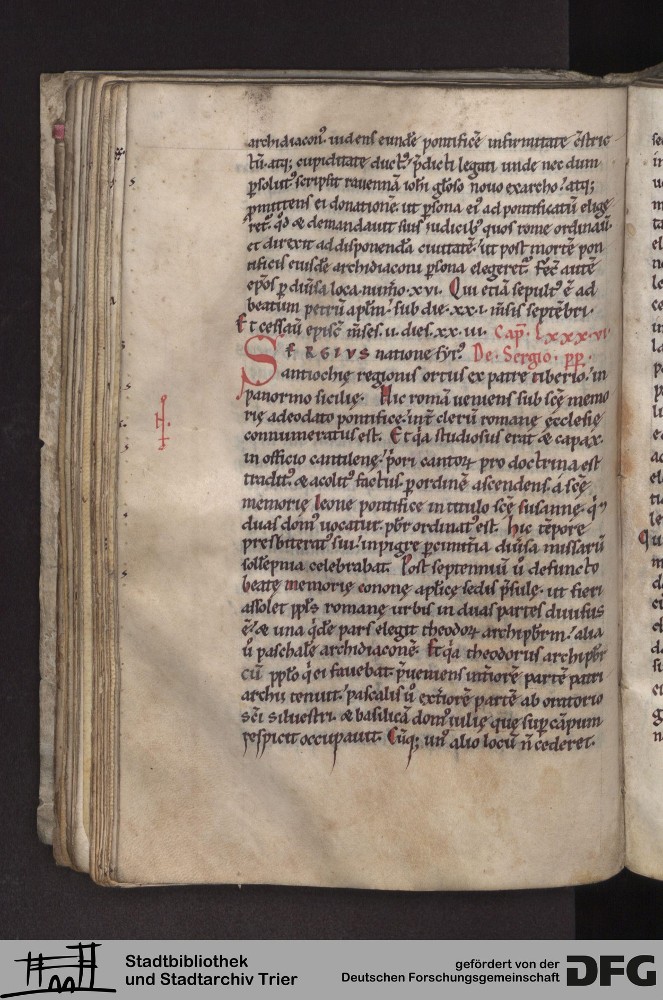 archidiacon᷒. uidens eundē pontificē infirmitate c̄stric
tū. atq; cupiditate duct᷒ p̄dicti legati unde nec dum
ꝑsolut᷒. scripsit rauennā ioh̄i gloso nouo exarcho. atq;
ꝓmittens ei donationē. ut ꝑsona ei᷒ ad pontificatū elige
ret᷒. qd̄ & demandauit suis iudicib᷒ quos rome ordinauit.
et direxit ad disponendā ciuitatē. ut post mortē pon
tificis eiusdē archidiaconi ꝑsona elegeret᷒. Fec̄ autē
ep̄os ꝑ diu̾sa loca. num̄o. xvi. Qui etiā sepult᷒ ē ad
beatum petrū apl̄m. sub die. xx. i. m̄sis septēbri.
Et cessau̅ episc̄ m̄ses. ii. dies. xx. iii. Cap̄. lxxxvi
SERGIVS natione syr᷒. De Sergio. pp̄.
antiochie regionis ortus ex patre tiberio. in
panormo sicilie. Hic romā ueniens sub scē memo
rie adeodato pontifice. int̄ clerū romane ecclesie
connumeratus est. Et q̄a studiosus erat & capax.
in officio cantilene. p̄ori cantoꝝ pro doctrina est
tradit᷒. & acolit᷒ factus. ꝑ ordinē ascendens. a scē
memorie leone pontifice in titulo scē susanne. q̄
duas dom᷒ uocatur. pbr̄ ordinat᷒ est. hic tēpore
presbiterat᷒ sui. inpigre ꝑ cimit̄ia diu̾sa missarū
sollēpnia celebrabat. Post septenniū ū defuncto
beate memorie conone ap̄lice sedis p̄sule. ut fieri
assolet ppl̄s romane urbis in duas partes diuisus
ē. & una q̄dē pars elegit theodoꝝ archipbr̄m. alia
ū paschalē archidiaconē. Et q̄a theodorus archipbr̄
cū pplō q̄ ei fauebat. p̄ueniens int̄iorē partē patri
archii tenuit. pascalis ū ext̄iorē partē ab oratorio
sc̄i siluestri. & basilicā dom᷒ iulie que suꝑ cāpum
respicit occupauit. Cūq; un᷒ alio locū n̄ cederet.
Stadtbibliothek
und Stadtarchiv Trier
gefördert von der
Deutschen Forschungsgemeinschaft
DFG